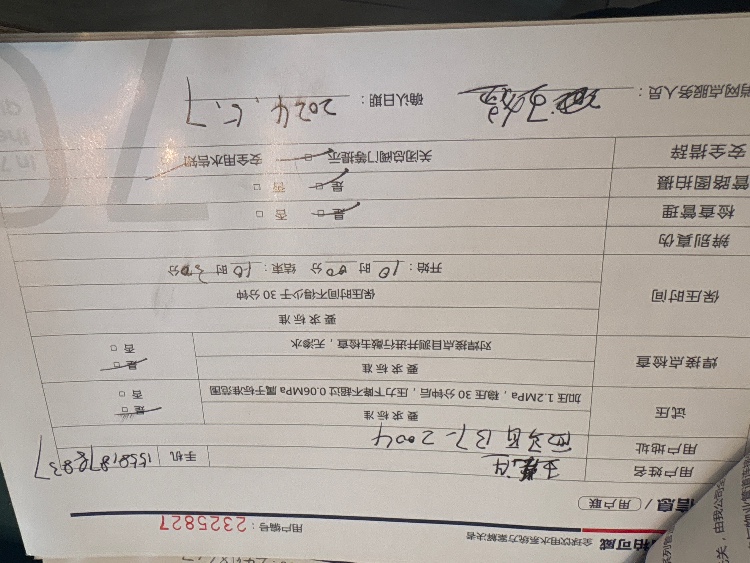 柏可威 全球饮用水系统方案解决者
用户编号：2325827
信息 / 用户联
用户姓名 手机
用户地址 137-2004
试压 要求标准 是 □ 否 □
加压 1.2MPa，稳压 30 分钟后，压力下降不超过 0.06MPa 属于标准范围
焊接点检查 要求标准 是 □ 否 □
对焊接点目测并进行敲击检查，无渗水
保压时间 要求标准
保压时间不得少于 30 分钟
开始：10 时 00 分 结束：10 时 30 分
辨别真伪
检查管理 是 □ 否 □
管路图拍摄 是 □ 否 □
安全措辞 关闭总阀门等提示 □ 安全用水告知
网点服务人员： 确认日期：2024.5.7